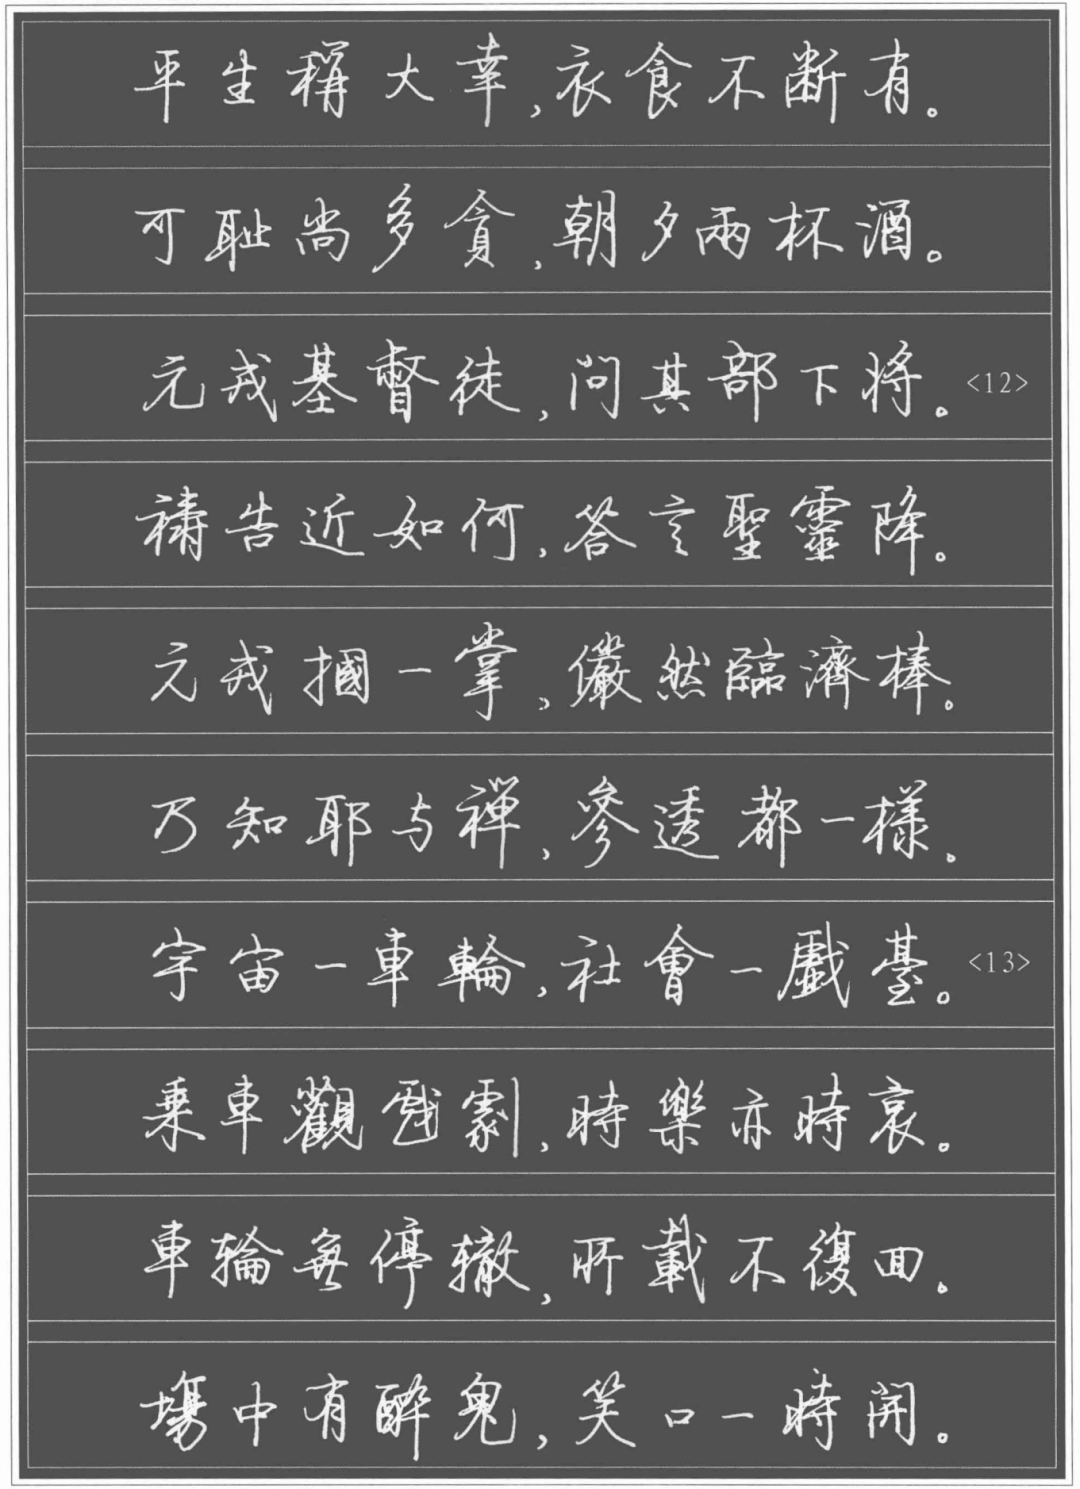 平生稱大幸,衣食不断有。
可耻尚多貪,朝夕兩杯酒。
元戎基督徒,问其部下将。<12>
禱告近如何,答言聖靈降。
元戎摑一掌,儼然臨濟棒。
乃知耶与禪,參透都一樣。
宇宙一車輪,社會一戲臺。<13>
乘車觀戲劇,時樂亦時哀。
車輪無停轍,所載不復回。
場中有醉鬼,笑口一時開。